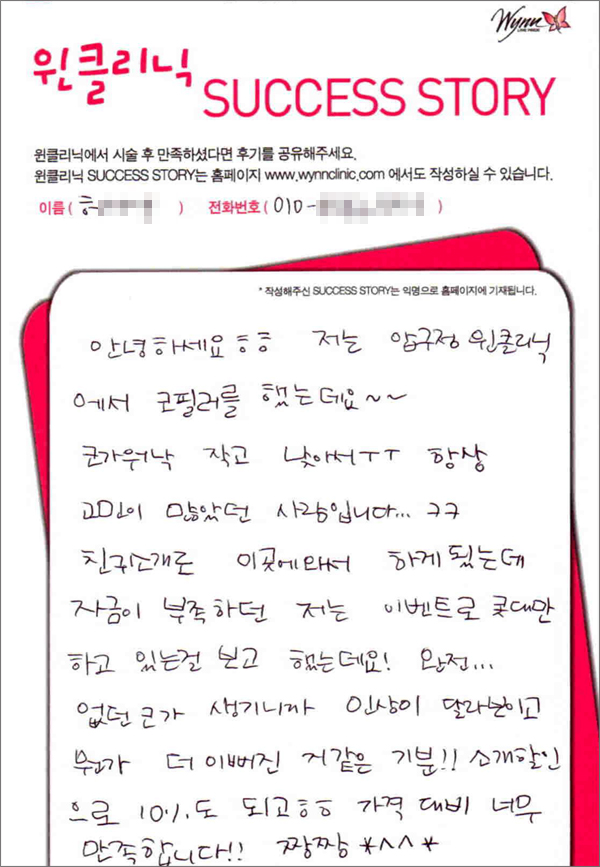 Wynn
LOVE PRIDE
윈클리닉
SUCCESS STORY
윈클리닉에서 시술 후 만족하셨다면 후기를 공유해주세요.
윈클리닉 SUCCESS STORY는 홈페이지 www.wynnclinic.com 에서도 작성하실 수 있습니다.
이름 ( 허 ) 전화번호 ( 010 - )
* 작성해주신 SUCCESS STORY는 익명으로 홈페이지에 기재됩니다.
안녕하세요 ㅎㅎ 저는 압구정 윈클리닉
에서 코필러를 했는데요~~
코가워낙 작고 낮아서ㅜㅜ 항상
고민이 많았던 사람입니다... ㅋㅋ
친구소개로 이곳에와서 하게 됬는데
자금이 부족하던 저는 이벤트로 콧대만
하고 있는걸 보고 했는데요! 완전...
없던 코가 생기니까 인상이 달라보이고
뭔가 더 이뻐진 거같은 기분!! 소개할인
으로 10%도 되고ㅎㅎ 가격 대비 너무
만족합니다!! 짱짱 *^^*